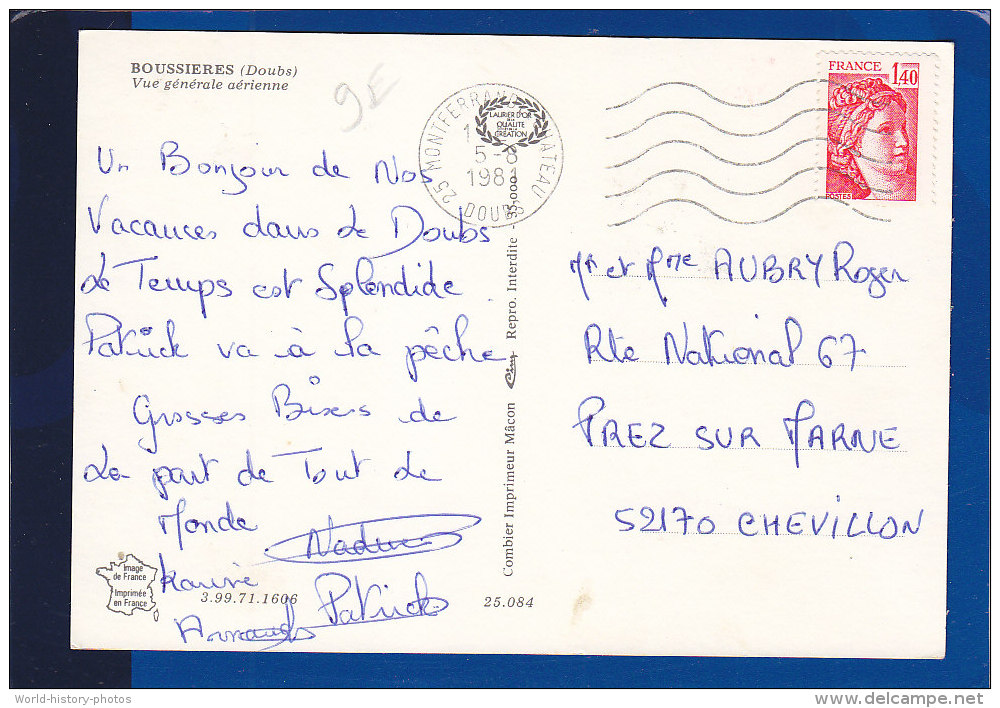 BOUSSIERES (Doubs)
Vue générale aérienne
9E
Un Bonjour de Nos
Vacances dans Le Doubs
Le Temps est Splendide
Patrick va à la pêche
Grosses Bises de
La part de Tout Le
Monde
Nadine
Karine
Patrick
Arnaud
Image
de France
Imprimée
en France
3.99.71.1606
25.084
Combier Imprimeur Mâcon Cim Repro. Interdite - 35.000
LAURIER D'OR
DE LA
QUALITE
CREATION
25 MONTFERRAND CHATEAU
5-8
1981
DOUBS
FRANCE
1,40
POSTES
Mr et Mme AUBRY Roger
Rte National 67
PREZ SUR MARNE
52170 CHEVILLON
World-history-photos
delcampe.net